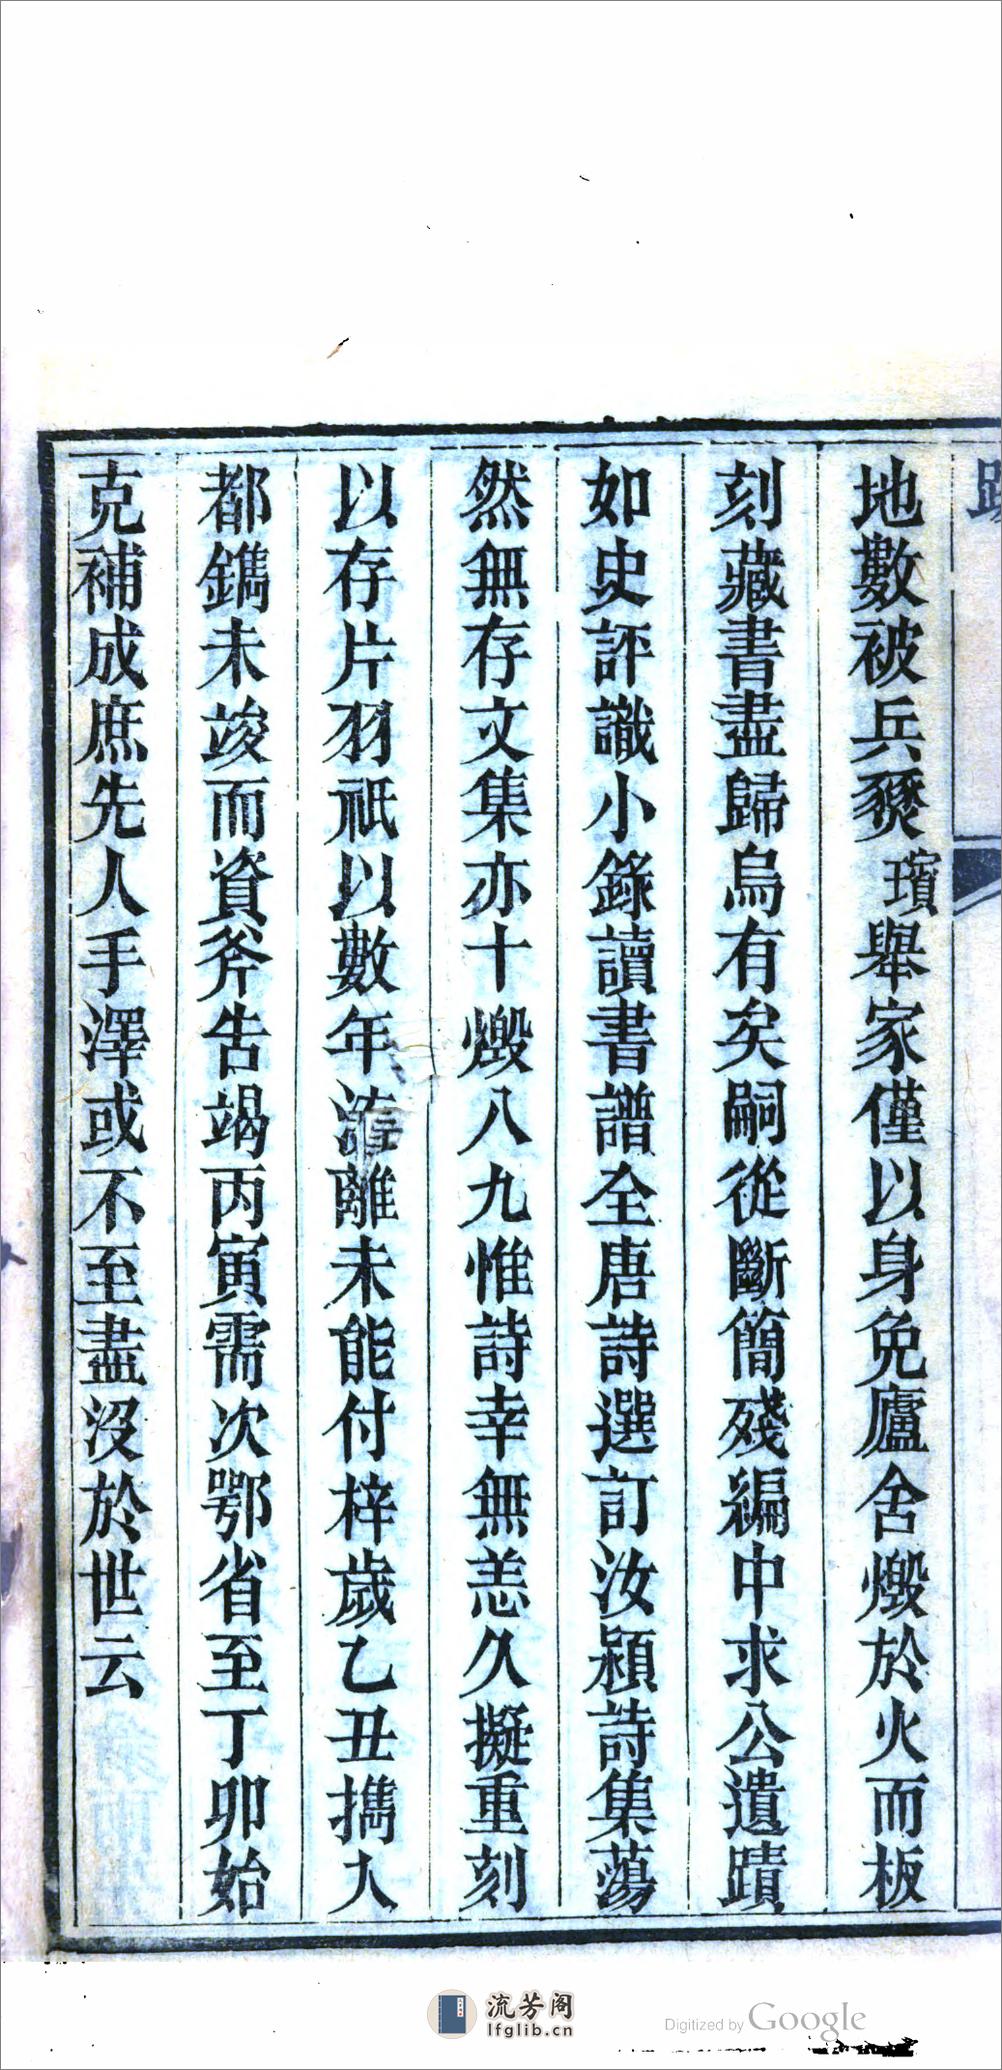 地數被兵燹璸舉家僅以身免廬舍燬於火而板
刻藏書盡歸烏有矣嗣從斷簡殘編中求公遺蹟
如史評識小錄讀書譜全唐詩選訂汝潁詩集蕩
然無存文集亦十燬八九惟詩幸無恙久擬重刻
以存片羽祇以數年流離未能付梓歲乙丑攜入
都鐫未竣而資斧告竭丙寅需次鄂省至丁卯始
克補成庶先人手澤或不至盡沒於世云
流芳阁
lfglib.cn
Digitized by Google